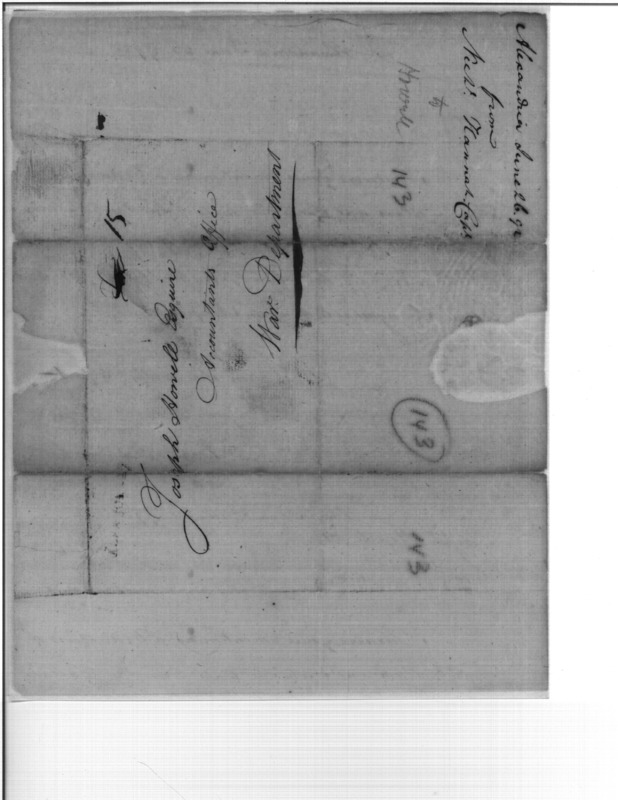 Alexandria June 26. 92
from
Nichs. Hannah Capt
Howell 143
to
15
Joseph Howell Esquire
Accountants Office
War Department
143
143